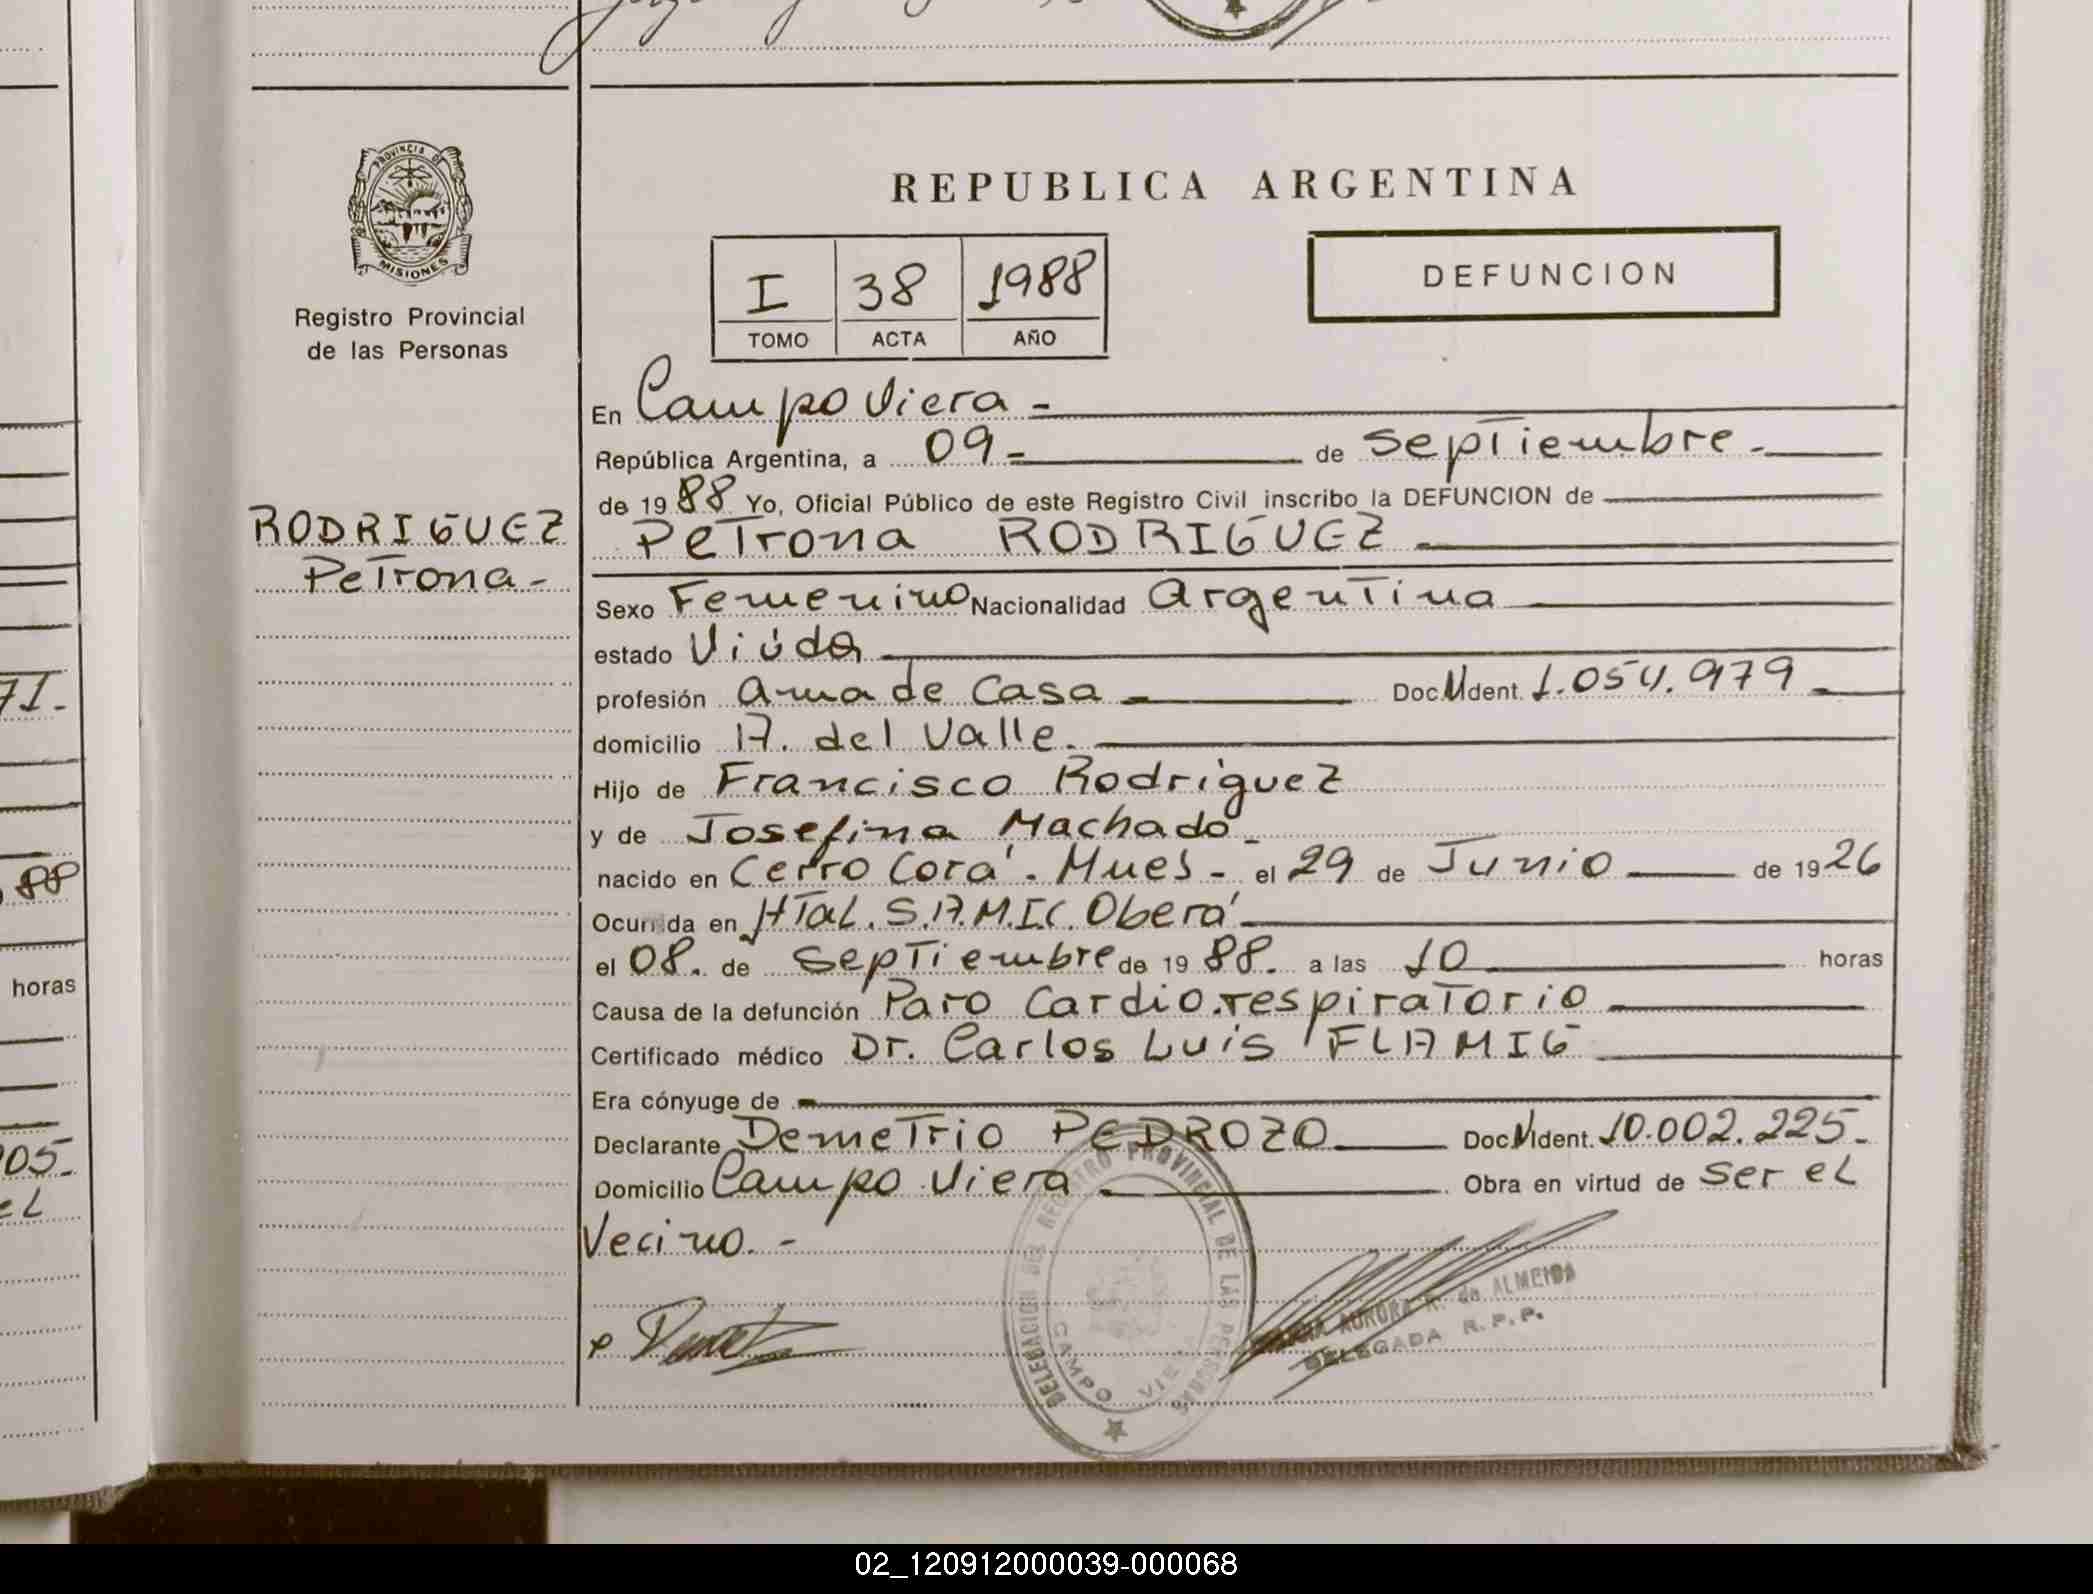 PROVINCIA DE
MISIONES
Registro Provincial
de las Personas
RODRIGUEZ
Petrona -
REPUBLICA ARGENTINA
I 38 1988
TOMO ACTA AÑO
DEFUNCION
En Campo Viera -
República Argentina, a 09 - de septiembre -
de 19 88 Yo, Oficial Público de este Registro Civil inscribo la DEFUNCION de
Petrona RODRIGUEZ -
Sexo Femenino Nacionalidad Argentina
estado Viúda
profesión ama de casa - Doc. M Ident. 1.054.979 -
domicilio A. del Valle.
Hijo de Francisco Rodriguez
y de Josefina Machado -
nacido en Cerro Corá. Mnes - el 29 de Junio de 19 26
Ocurrida en Htal. S.A.M.I.C. Oberá
el 08. de septiembre de 19 88. a las 10 horas
Causa de la defunción Paro Cardio.respiratorio
Certificado médico Dr. Carlos Luis FLAMIG
Era cónyuge de -
Declarante Demetrio PEDROZO Doc. M Ident. 10.002.225 -
Domicilio Campo Viera - Obra en virtud de ser el
Vecino. -
DELEGACION DEL REGISTRO PROVINCIAL DE LAS PERSONAS
CAMPO VIERA
AURORA R. de ALMEIDA
DELEGADA R.P.P.
71.-
88
horas
05.-
el
02_120912000039-000068